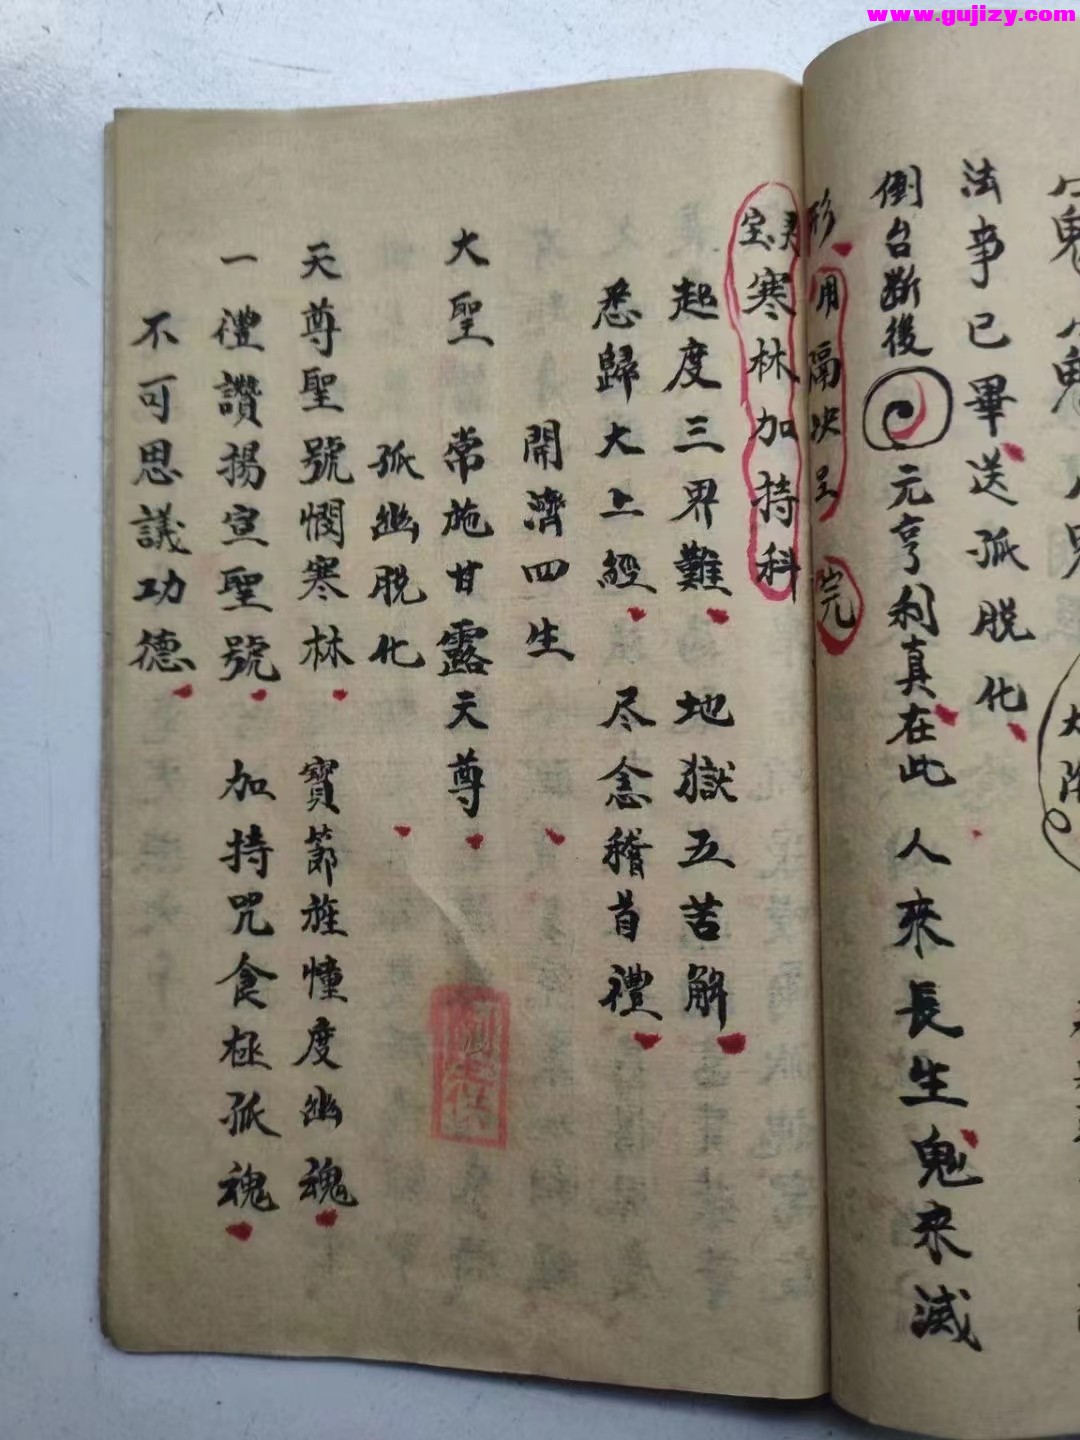 www.gujizy.com
法事已畢送孤脱化
倒台断後 元亨利真在此 人來長生鬼來滅
形 用隔决呈 完
灵宝寒林加持科
起度三界難 地獄五苦解
悉歸大上經 尽念稽首禮
開濟四生
大聖 常施甘露天尊
孤幽脱化
天尊聖號憫寒林 寶節旌幢度幽魂
一禮讚揚宣聖號 加持咒食极孤魂
不可思議功德